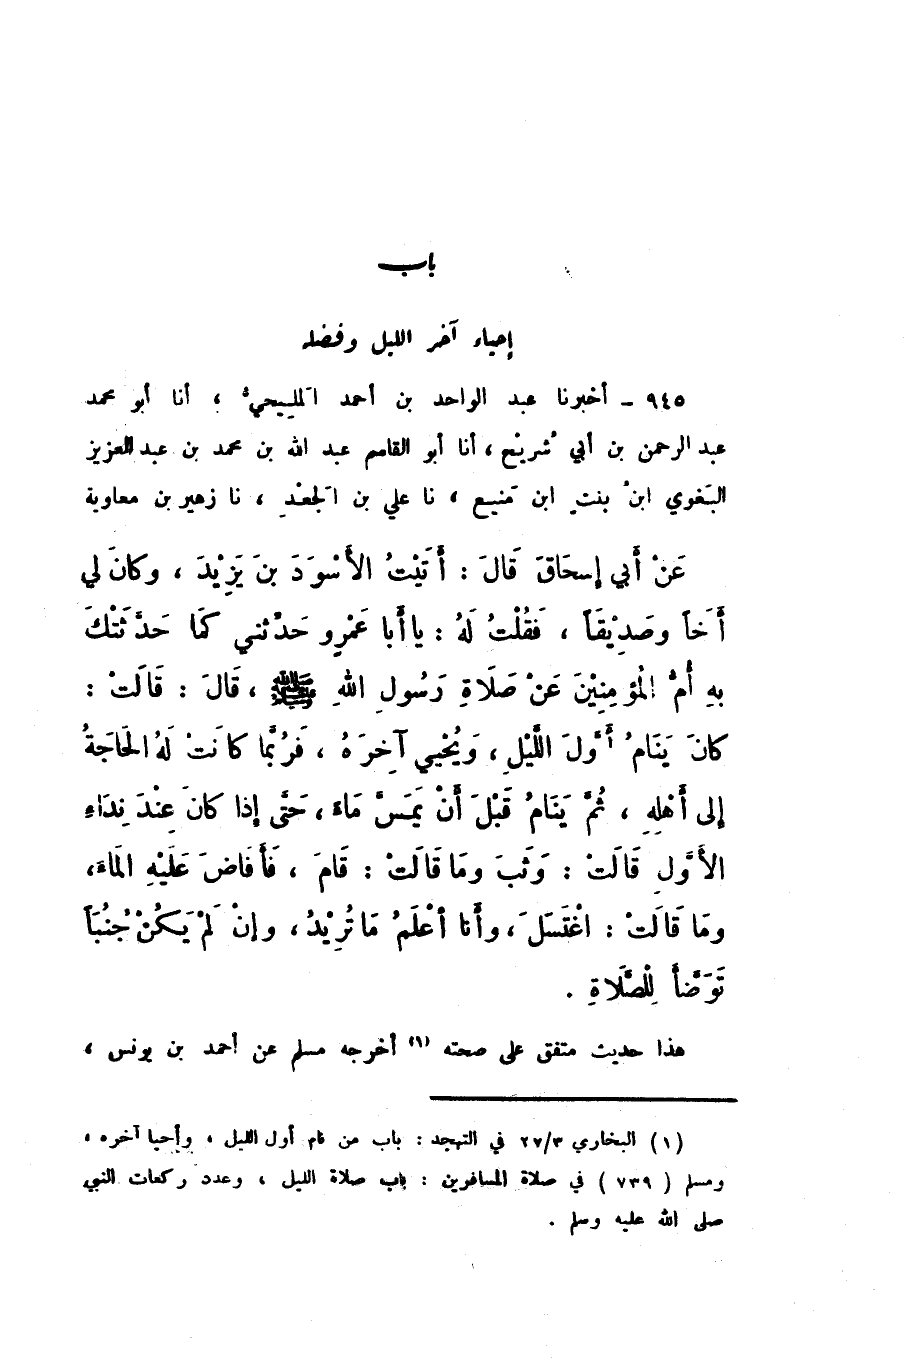 باب
إحياء آخر الليل وفضله
٩٤٥ ـ أخبرنا عبد الواحد بن أحمد المَلِيحيُّ ، أنا أبو محمد
عبد الرحمن بن أبي شُريْح ، أنا أبو القاسم عبد الله بن محمد بن عبد العزيز
البَغوي ابنُ بنتِ ابن مَنيع ، نا علي بن الَجعْدِ ، نا زهير بن معاوية
عَنْ أَبي إسحَاقَ قَالَ : أَتَيْتُ الأَسْوَدَ بنَ يَزِيْدَ ، وكانَ لي
أَخاً وصَدِيْقَاً ، فَقُلْتُ لَهُ : يا أَبا عَمْرٍو حَدِّثني كَمَا حَدَّثَتْكَ
بهِ أُمُّ المْؤمِنِيْنَ عَنْ صَلَاةِ رَسُولِ اللهِ ﷺ ، قَالَ : قَالَتْ :
كانَ يَنَامُ أَوَّلَ اللَّيْلِ ، وَيُحْيي آخِرَهُ ، فَرُبَّما كانَتْ لَهُ الحَاجَةُ
إلى أَهْلِهِ ، ثُمَّ يَنَامُ قَبْلَ أَنْ يَمَسَّ مَاءً ، حَتَّى إذا كانَ عِنْدَ نِدَاءِ
الأَوَّلِ قَالَتْ : وَثَبَ ومَا قَالَتْ : قَامَ ، فَأَفَاضَ عَلَيْهِ المَاءَ ،
ومَا قَالَتْ : اغْتَسَلَ ، وأَنا أعْلَمُ مَا تُرِيْدُ ، وإنْ لَمْ يَكُنْ جُنُبَاً
تَوَضَّأَ لِلْصَّلَاةِ .
هذا حديث متفق على صحته (١) أخرجه مسلم عن أحمد بن يونس ،
(١) البخاري ٢٧/٣ في التهجد : باب من نام أول الليل ، وأحيا آخره ،
ومسلم ( ٧٣٩ ) في صلاة المسافرين : باب صلاة الليل ، وعدد ركعات النبي
صلى الله عليه وسلم .